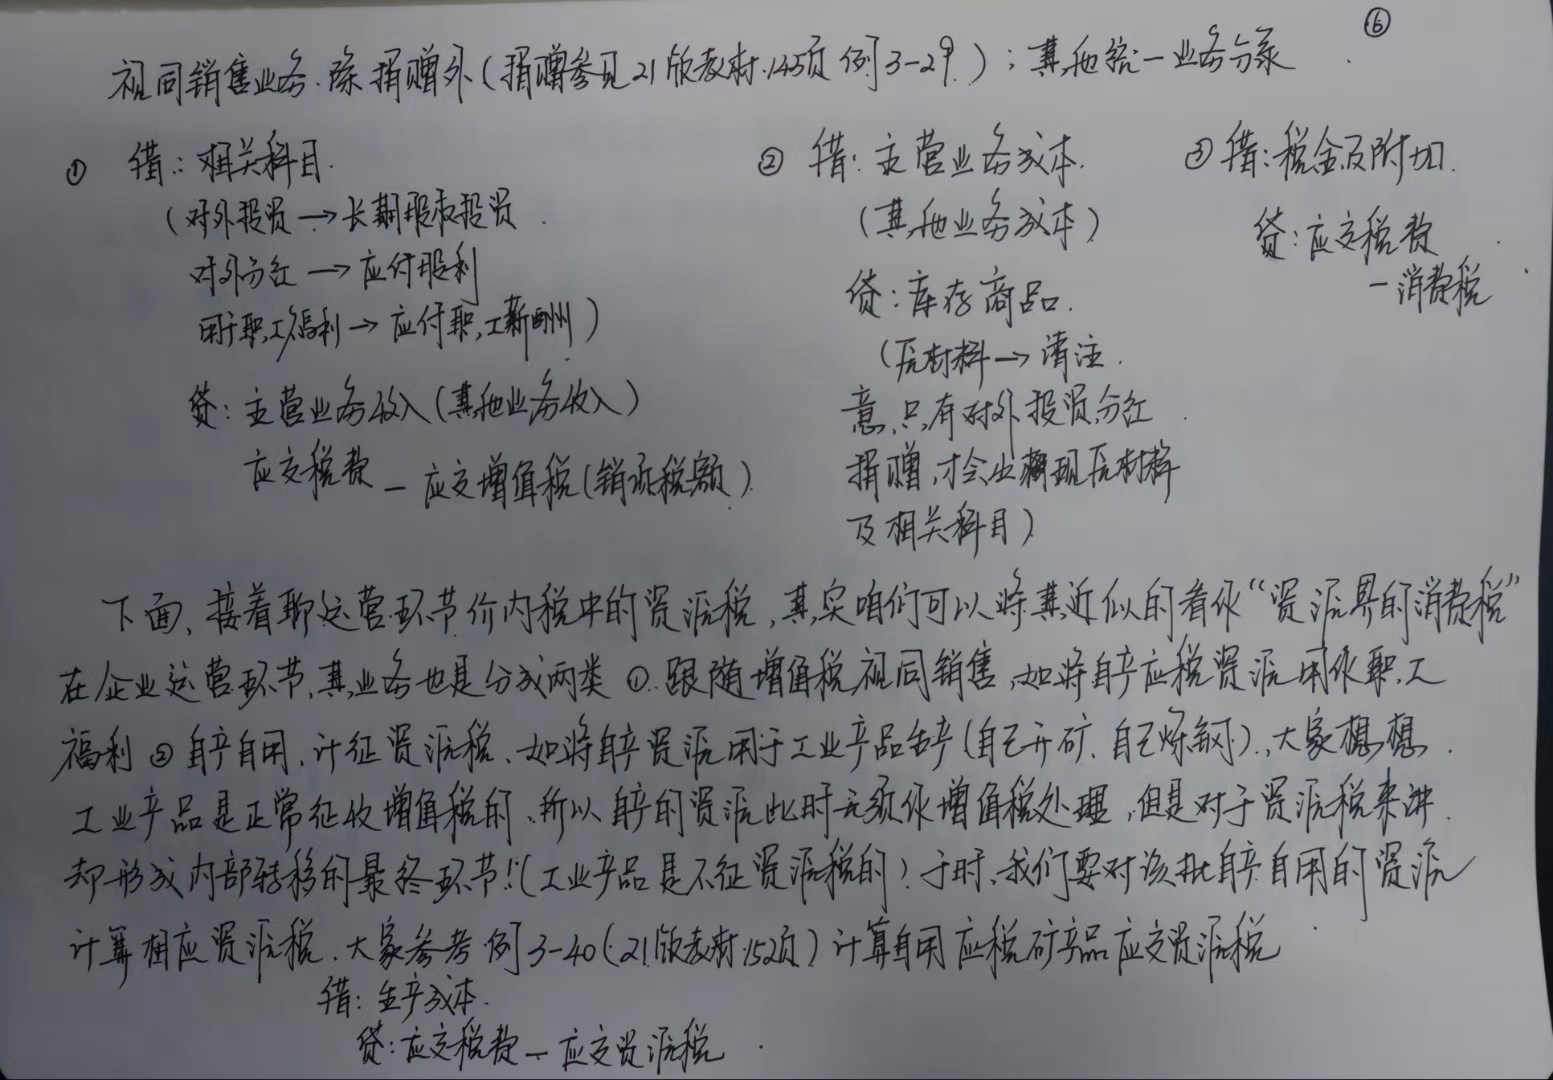 ⑥
视同销售业务.除捐赠外(捐赠参见21版教材.145页 例3-29.);其他统一业务分录
① 借:相关科目.
(对外投资→长期股权投资.
对外分红→应付股利
用于职工福利→应付职工薪酬)
贷:主营业务收入(其他业务收入)
应交税费-应交增值税(销项税额)
② 借:主营业务成本.
(其他业务成本)
贷:库存商品.
(原材料→请注.
意,只有对外投资分红
捐赠,才会出现原材料
及相关科目)
③ 借:税金及附加.
贷:应交税费
-消费税
下面,接着聊运营环节价内税中的资源税,其实咱们可以将其近似的看作“资源界的消费税”
在企业运营环节,其业务也是分成两类 ①.跟随增值税视同销售,如将自产应税资源用作职工
福利 ②自产自用,计征资源税、如将自产资源用于工业产品生产(自己开矿、自己炼钢).大家想想.
工业产品是正常征收增值税的、所以自产的资源此时无须作增值税处理,但是对于资源税来讲.
却形成内部转移的最终环节!(工业产品是不征资源税的)于时、我们要对该批自产自用的资源
计算相应资源税.大家参考例3-40(21版教材152页)计算自用应税矿产品应交资源税
借:生产成本.
贷:应交税费-应交资源税.